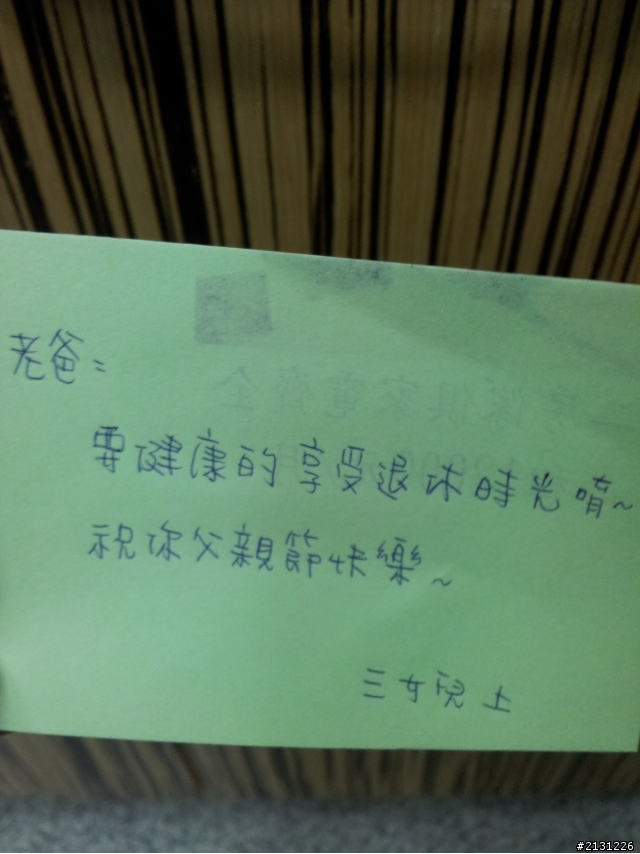 老爸：
要健康的享受退休時光唷~
祝你父親節快樂~
三女兒 上
#2131226